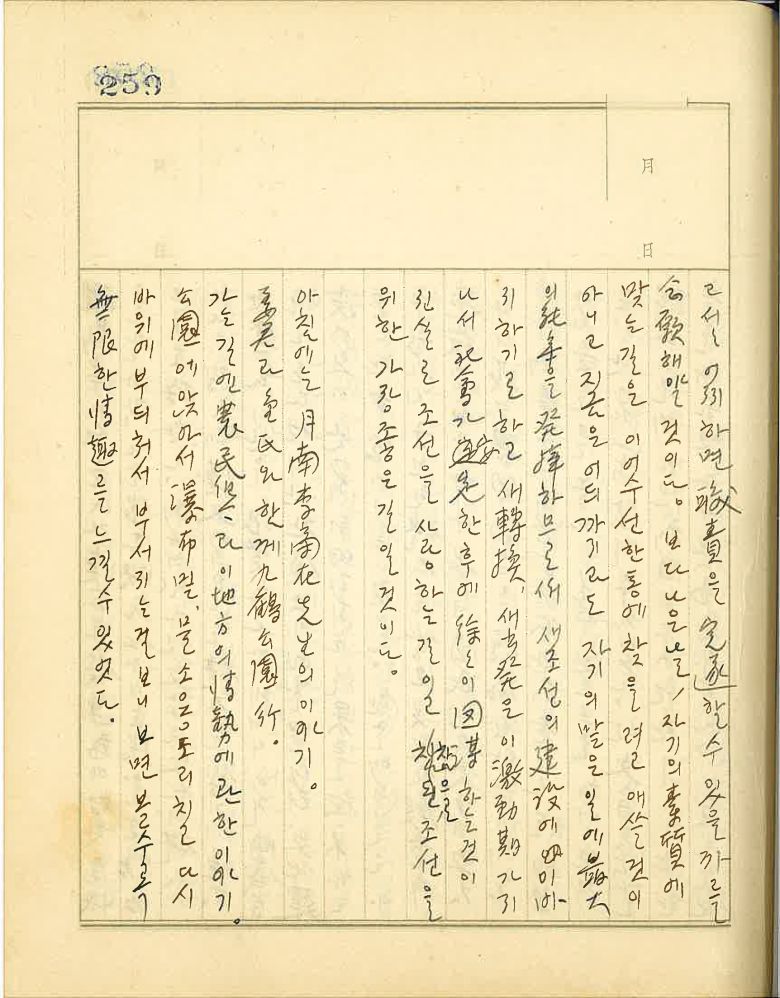 259
月
日
고서는 어찌하면 職責을 完遂할 수 있을까를
念願해야 할 것이다。 보다 나은 날, 자기의 素質에
맞는 길을 이 어수선한 통에 찾을려고 애쓸 것이
아니고 지금은 어듸까지라도 자기의 맡은 일에 最大
의 能率을 発揮하므로서 새 조선의 建設에 이바
지하기로 하고 새 轉換, 새 出発은 이 激動期가 지
나서 社會가 安定한 후에 徐々이 図謀하는 것이
진실로 조선을 사랑하는 길이고 참으로 조선을
위한 가장 좋은 길일 것이다。
아침에는 月南李商在先生의 이야기。
姜君과 金氏와 한께 九鶴公園 行。
가는 길엔 農民組合과 이 地方의 情勢에 관한 이야기。
公園에 앉아서 瀑布 밑, 물 소용도리칠 다시
바위에 부듸처서 부서지는 걸 보니 보면 볼수록
無限한 情趣를 느낄 수 있었다。